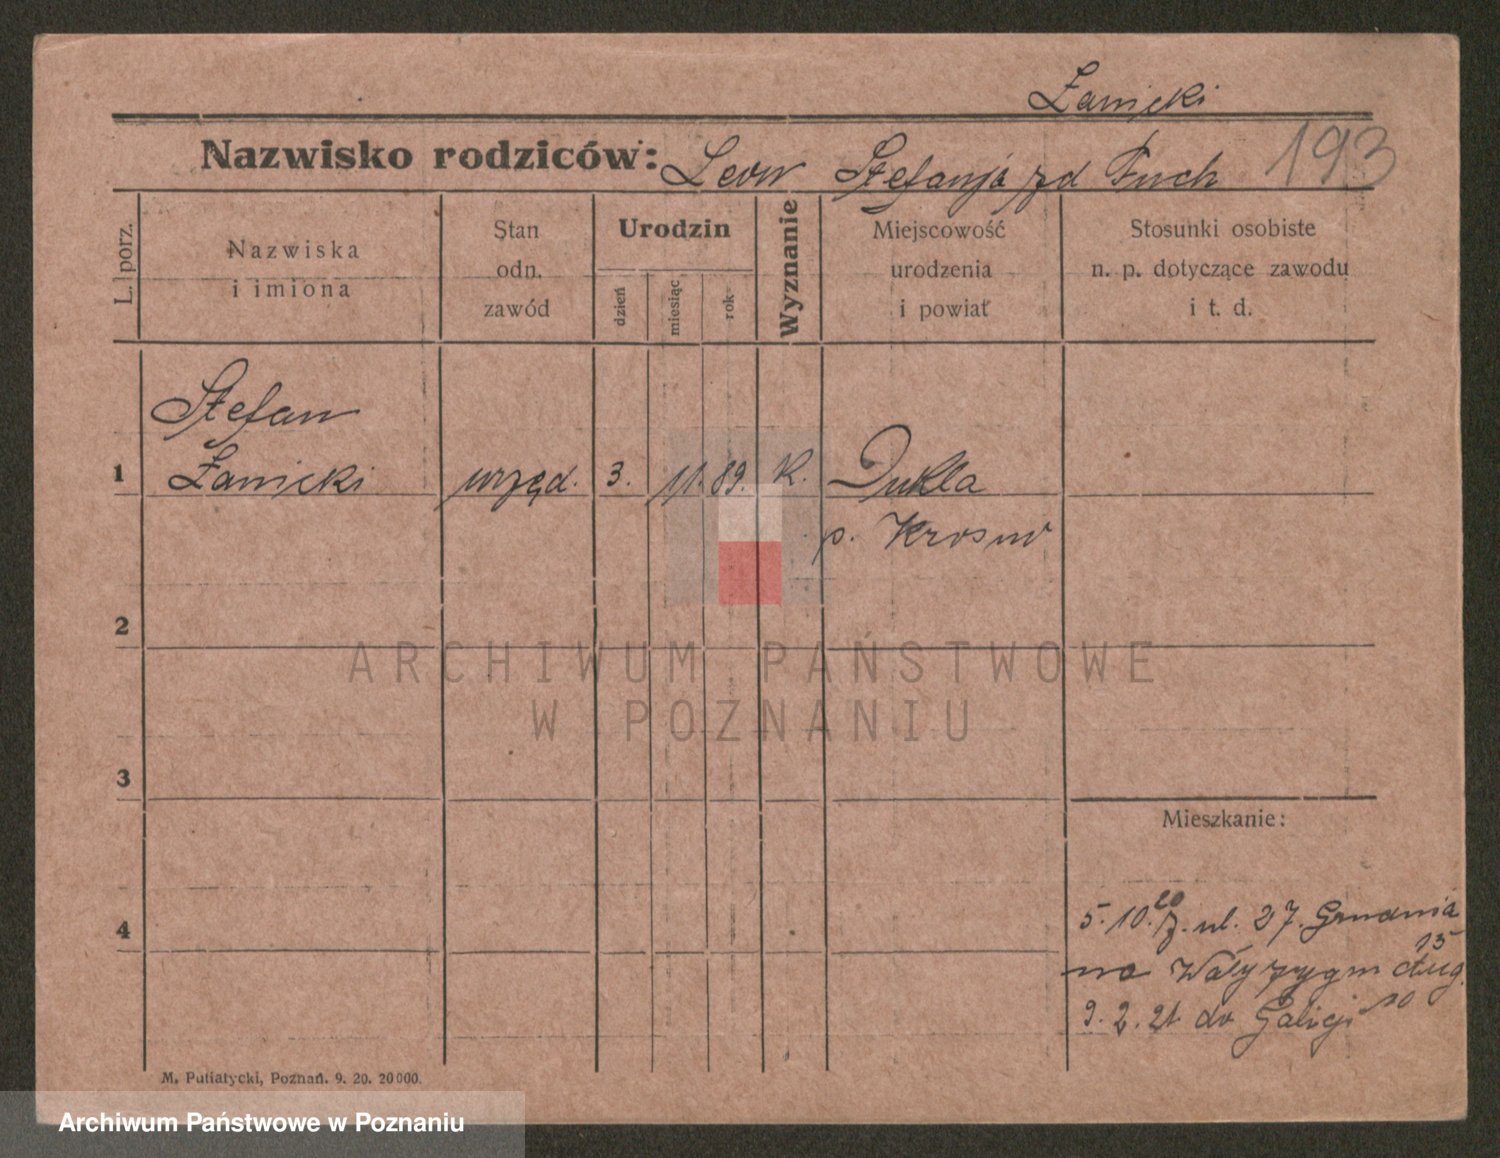 Łanięcki
Nazwisko rodziców: Leon Stefanja zd Fuch 193
L. porz.
Nazwiska
i imiona
Stan
odn.
zawód
Urodzin
dzień
miesiąc
rok
Wyznanie
Miejscowość
urodzenia
i powiat
Stosunki osobiste
n. p. dotyczące zawodu
i t. d.
Stefan
1 Łanięcki urzęd. 3. 11. 89. K. Dukla
p. Krosno
2
ARCHIWUM PAŃSTWOWE
W POZNANIU
3
Mieszkanie:
4
5. 10. 20 z. ul. 27. Grudnia
na Wały zygm Aug. 15
9. 2. 21 do Galicji
M. Putiatycki, Poznań. 9. 20. 20000.
Archiwum Państwowe w Poznaniu